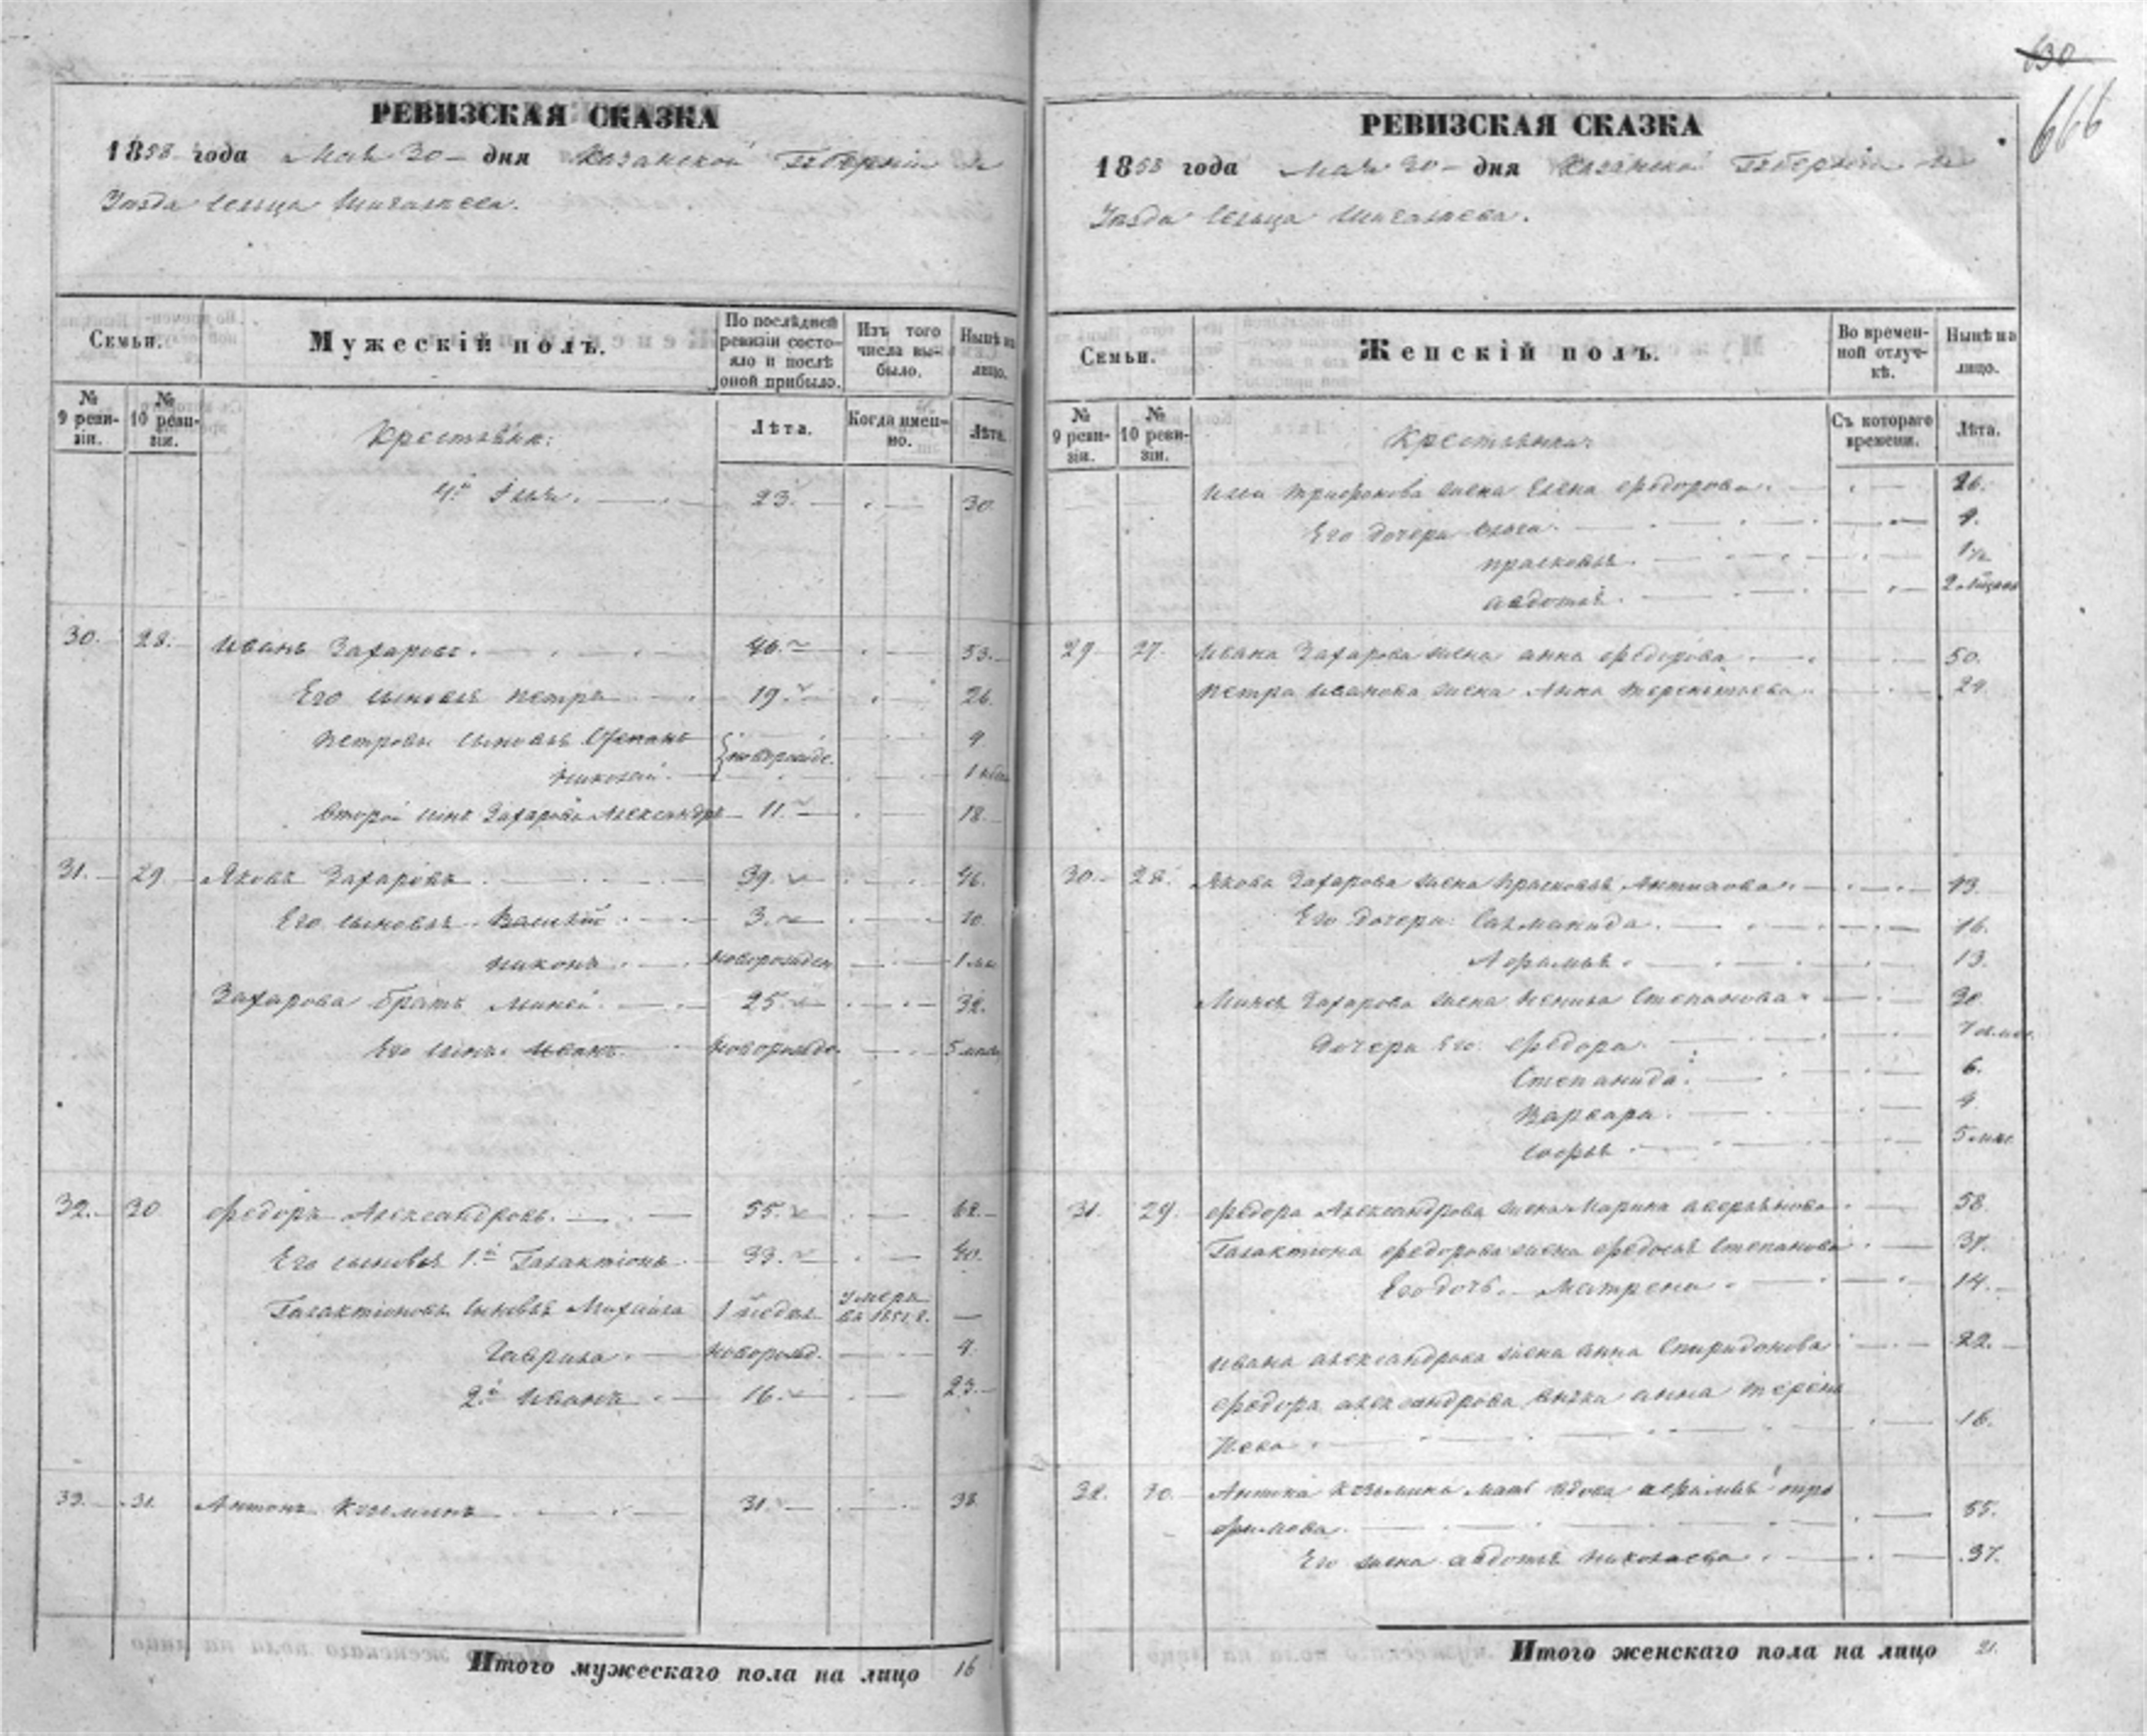 РЕВИЗСКАЯ СКАЗКА
1858 года Мая 30 дня Казанской Губернiи
Уѣзда Сельца
Семьи.
Мужескiй полъ.
По послѣдней ревизiи состояло и послѣ оной прибыло.
Изъ того числа выбыло.
Нынѣ на лицо.
№ 9 ревизiи.
№ 10 ревизiи.
Крестьяне:
Лѣта.
Когда именно.
Лѣта.
4й Илья. 23. 30.
30. 28. Иванъ Захаровъ. 46. 53.
Его сыновья Петръ 19. 26.
Петровы сыновья Степанъ новорожде. 9
Николай
Второй сынъ Захарова Александръ 11. 18.
31. 29. Яковъ Захаровъ 39. 46.
Его сыновья 3. 10.
Никонъ новорожден
Захарова братъ Миней 25. 32.
Его сынъ Иванъ новорожде.
32. 30 Федоръ Александровъ. 55. 62.
Его сыновья 1й Галактiонъ 33. 40.
Галактiоновы сыновья Михайла 1 недел умеръ въ 1851 г. —
Гаврила новорожд. 4
2й Иванъ 16. 23.
33. 31. Антонъ Козьминъ 31. 38.
Итого мужескаго пола на лицо 16
630
666
РЕВИЗСКАЯ СКАЗКА
1858 года Мая 30 дня Казанской Губернiи
Уѣзда Сельца
Семьи.
Женскiй полъ.
Во временной отлучкѣ.
Нынѣ на лицо.
№ 9 ревизiи.
№ 10 ревизiи.
Крестьянки
Съ котораго времени.
Лѣта.
Ильи Трифонова жена Елена Федорова. 26.
Его дочери Ольга
Прасковья.
Авдотья.
29 27. Ивана Захарова жена Анна Федорова 50.
Петра Иванова жена Анна Терентьева
30. 28. Якова Захарова жена Прасковья Антипова 43.
Его дочери: Саламанида. 16.
Афимья. 13.
Минея Захарова жена Ксенья Степанова 30
Дочери Его: Федора
Степанида. 6.
Варвара. 4.
Софья
31. 29. Федора Александрова жена Марина Аверьянова 58.
Галактiона Федорова жена Федосья Степанова 37.
Его дочь Матрена 14.
Ивана Александрова жена Анна Спиридонова 22.
Федора Александрова внучка Анна Терень
16.
32. 30. Антона Козьмина мать вдова Афимья Тро
фимова. 55.
Его жена Авдотья Николаева 37.
Итого женскаго пола на лицо 21.